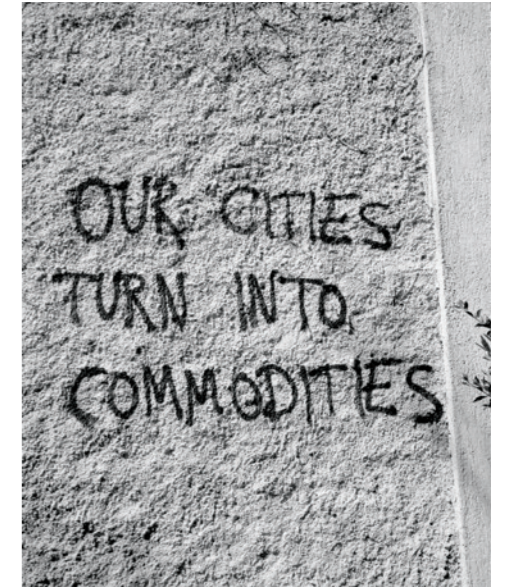 OUR CITIES
TURN INTO
COMMODITIES